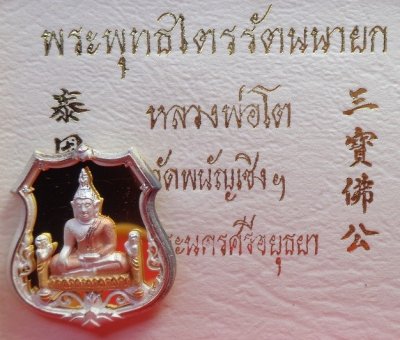 พระพุทธไตรรัตนนายก
หลวงพ่อโต
วัดพนัญเชิงฯ
พระนครศรีอยุธยา
泰
三寶佛公